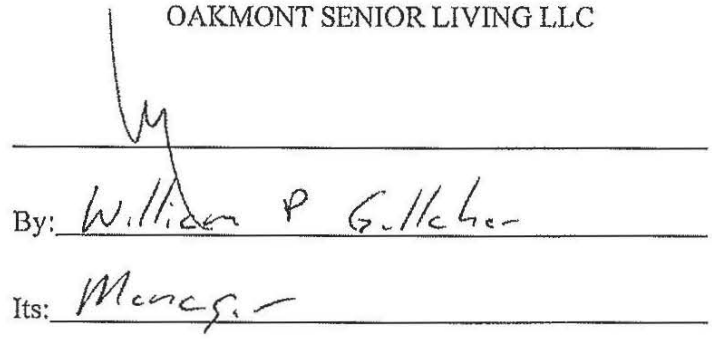 OAKMONT SENIOR LIVING LLC
By: William P Gallaher
Its: Manager